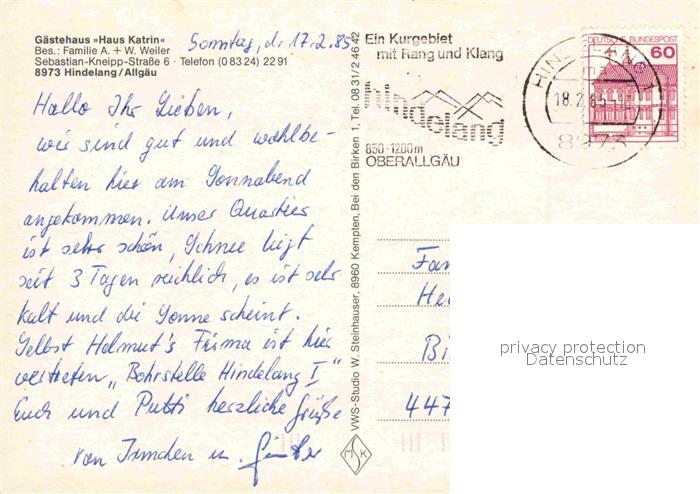 Gästehaus »Haus Katrin«
Bes.: Familie A. + W. Weiler
Sebastian-Kneipp-Straße 6 · Telefon (0 83 24) 22 91
8973 Hindelang/Allgäu
Sonntag, d. 17.2.85
Hallo Ihr Lieben,
wir sind gut und wohlbe-
halten hier am Sonnabend
angekommen. Unser Quartier
ist sehr schön, Schnee liegt
seit 3 Tagen reichlich, es ist sehr
kalt und die Sonne scheint.
Selbst Helmut's Firma ist hier
vertreten „Bohrstelle Hindelang I"
Euch und Putti herzliche Grüße
von Irmchen u. Günter
VWS-Studio W. Steinhauser, 8960 Kempten, Bei den Birken 1, Tel. 08 31/2 46 42
Ein Kurgebiet
mit Rang und Klang
hindelang
850-1200m
OBERALLGÄU
HINDELANG 1
18.2.85
8973
DEUTSCHE BUNDESPOST
60
Fam
He
Bi
447
privacy protection
Datenschutz